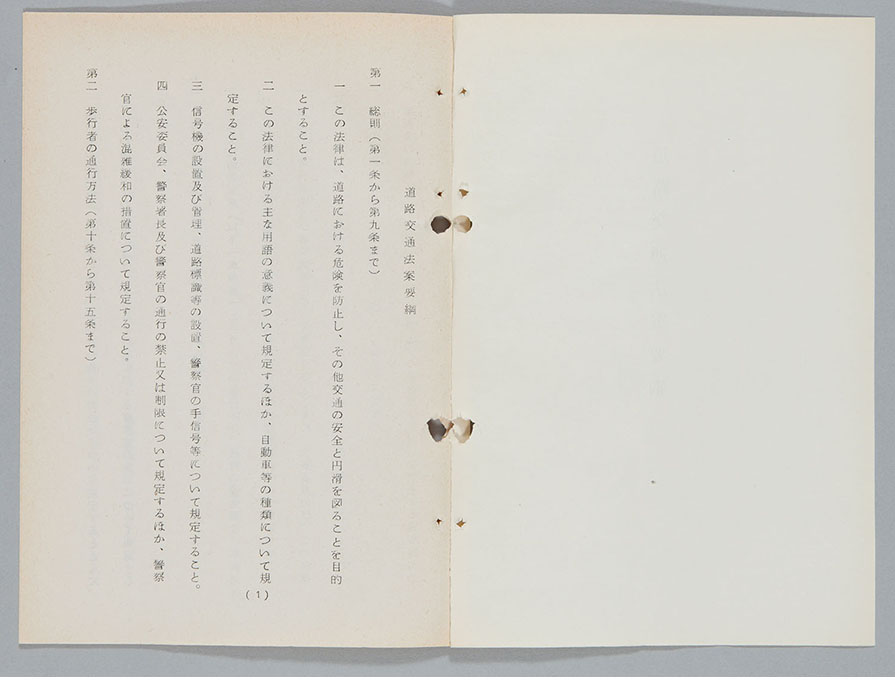 道路交通法案要綱
第一　総則（第一条から第九条まで）
一　この法律は、道路における危険を防止し、その他交通の安全と円滑を図ることを目的
とすること。
二　この法律における主な用語の意義について規定するほか、自動車等の種類について規
定すること。
三　信号機の設置及び管理、道路標識等の設置、警察官の手信号等について規定すること。
四　公安委員会、警察署長及び警察官の通行の禁止又は制限について規定するほか、警察
官による混雑緩和の措置について規定すること。
第二　歩行者の通行方法（第十条から第十五条まで）
（1）